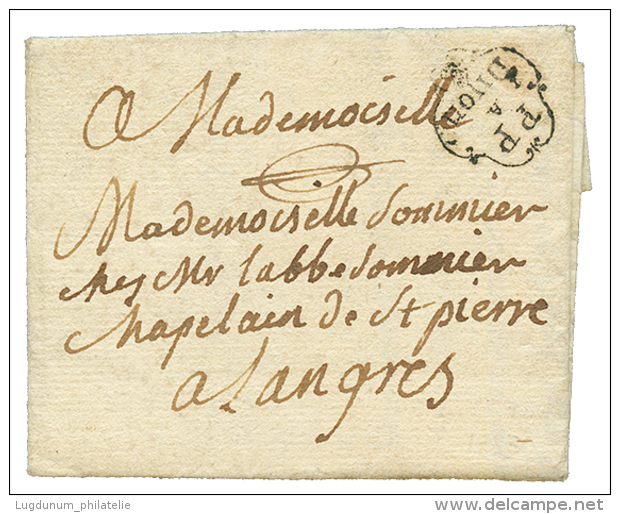 A Mademoiselle
Mademoiselle Sommier
ches Mr labbe Sommier
Chapelain de St pierre
a Langres
Dijon
A
P P
Lugdunum_philatelie
delcampe.net